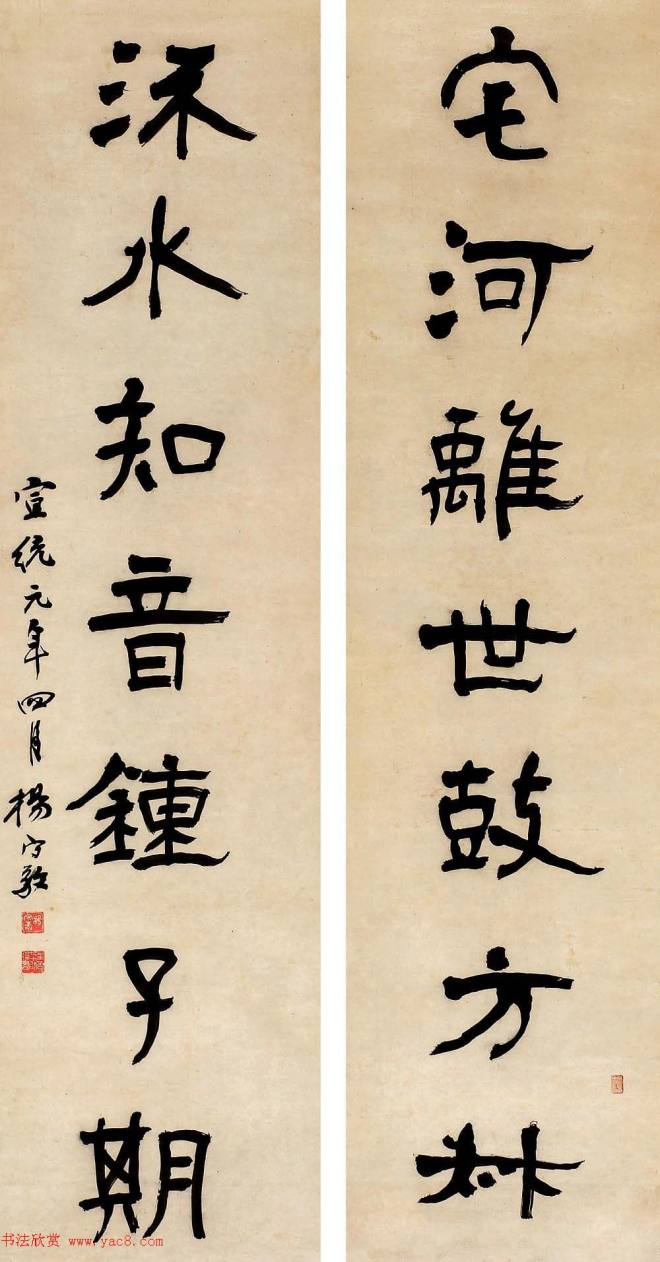 宅河離世鼓方叔
水知音鍾子期
宣統元年四月楊守敬
书法欣赏 www.yac8.com